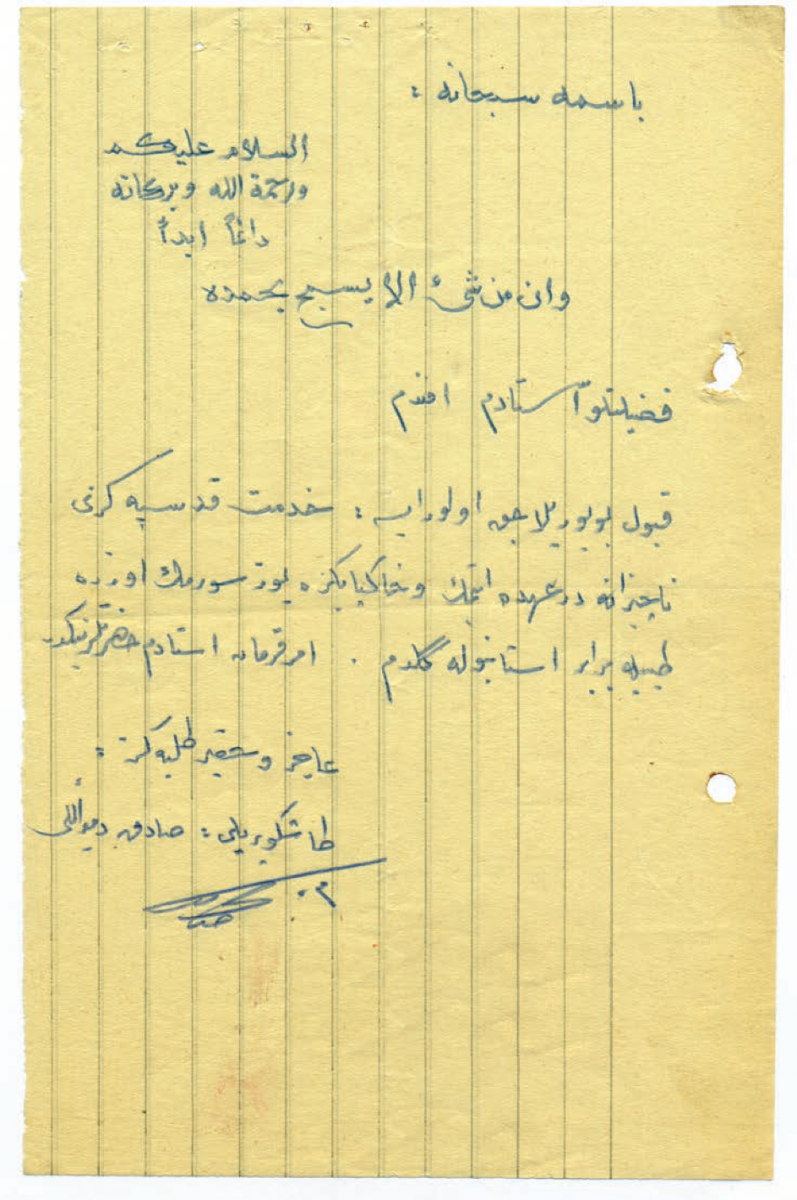 باسمه سبحانه :
السلام عليكم
ورحمة الله وبركاته
دائماً ابداً
وان من شئ الا يسبح بحمده
فضيلتلو استادم افندم
قبول بويوريلاجق اولورايسه : خدمت قدسيه كزى
ناچيزانه درعهده ايتمك وخاكپايكزه يوز سورمك اوزره
طيبله برابر استانبوله گلدم . امر فرمان استادم حضرتلرينكدر
عاجز وحقير طلبه كز :
طاشكوپريلى : صادق دميراللى
م.